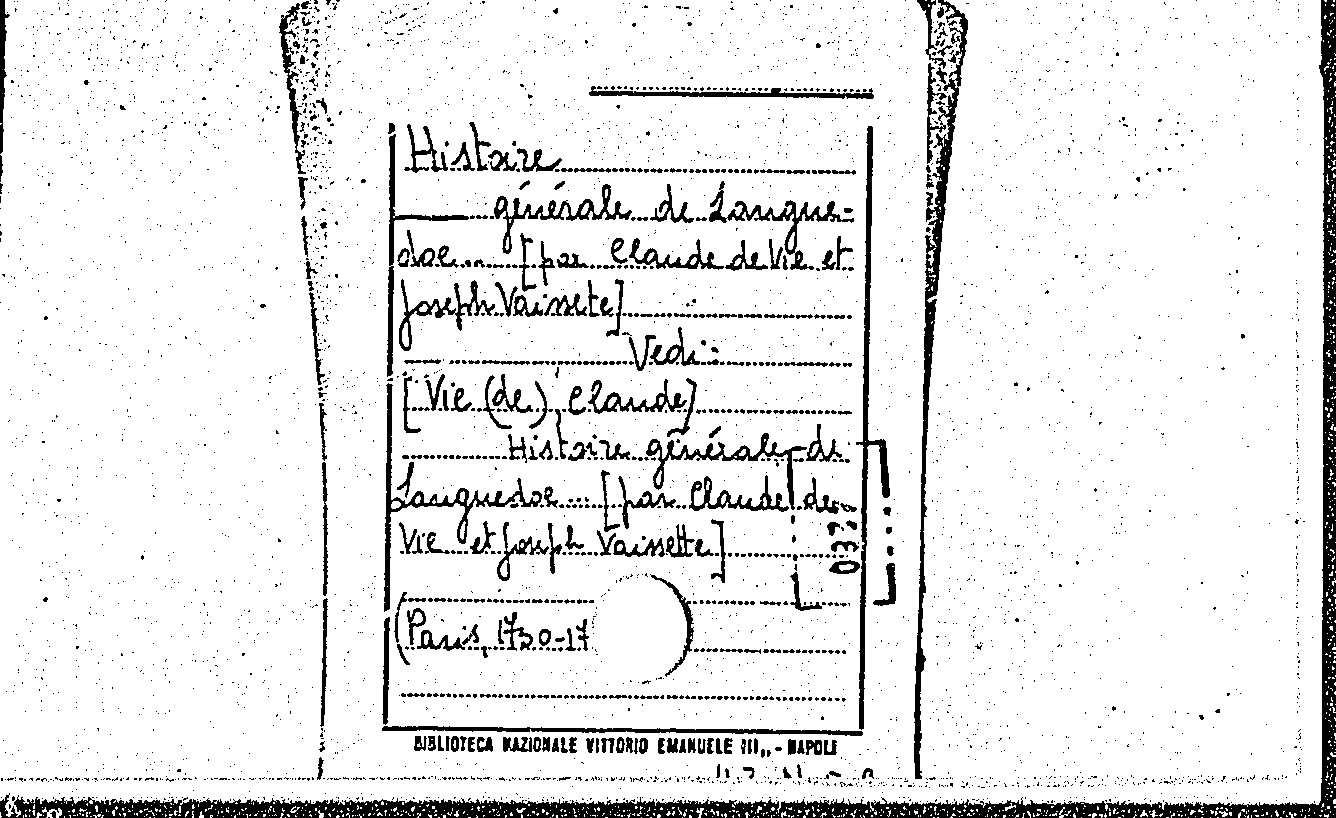 Histoire
générale de Langue-
doc... [par Claude de Vie et
Joseph Vaissete]
Vedi:
[Vie (de), Claude]
Histoire générale de
Languedoc... [par Claude de
Vie et Joseph Vaissette]
(Paris, 1730-17
BIBLIOTECA NAZIONALE VITTORIO EMANUELE III,, - NAPOLI